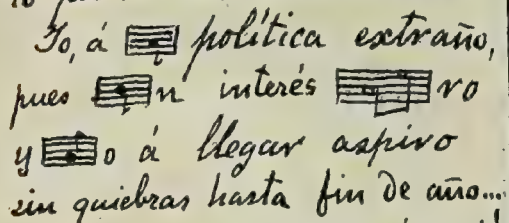 Yo, á política extraño,
pues n interés ro
y o á llegar aspiro
sin quiebras hasta fin de año...